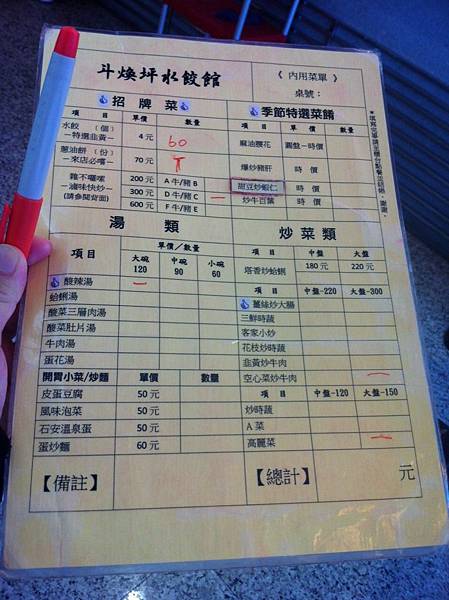 斗煥坪水餃館
《 內用菜單 》
桌號：
招牌菜
項 目 單價 數量
水餃 （個）
－特選韭黃－ 4元 60
蔥油餅（份）
－來店必嚐－ 70元
雜不囉嗦
－滷味快炒－
(請參閱背面)
200元 A牛/豬B
300元 D牛/豬C
600元 F牛/E
季節特選菜餚
項 目 單價 數量
麻油腰花 圓盤－時價
爆炒豬肝 時 價
甜豆炒蝦仁 時 價
炒牛百葉 時 價
湯 類
項目 單價／數量
大碗 中碗 小碗
120 90 60
酸辣湯
蛤蜊湯
酸菜三層肉湯
酸菜肚片湯
牛肉湯
蛋花湯
炒菜類
項目 單價／數量
塔香炒蛤蜊 180元 220元
項 目 中盤-220 大盤-300
薑絲炒大腸
三鮮時蔬
客家小炒
花枝炒時蔬
韭黃炒牛肉
空心菜炒牛肉
項 目 中盤-120 大盤-150
炒時蔬
A菜
高麗菜
開胃小菜/炒麵 單價 數量
皮蛋豆腐 50元
風味泡菜 50元
石安溫泉蛋 50元
蛋炒麵 60元
【備註】
【總計】 元